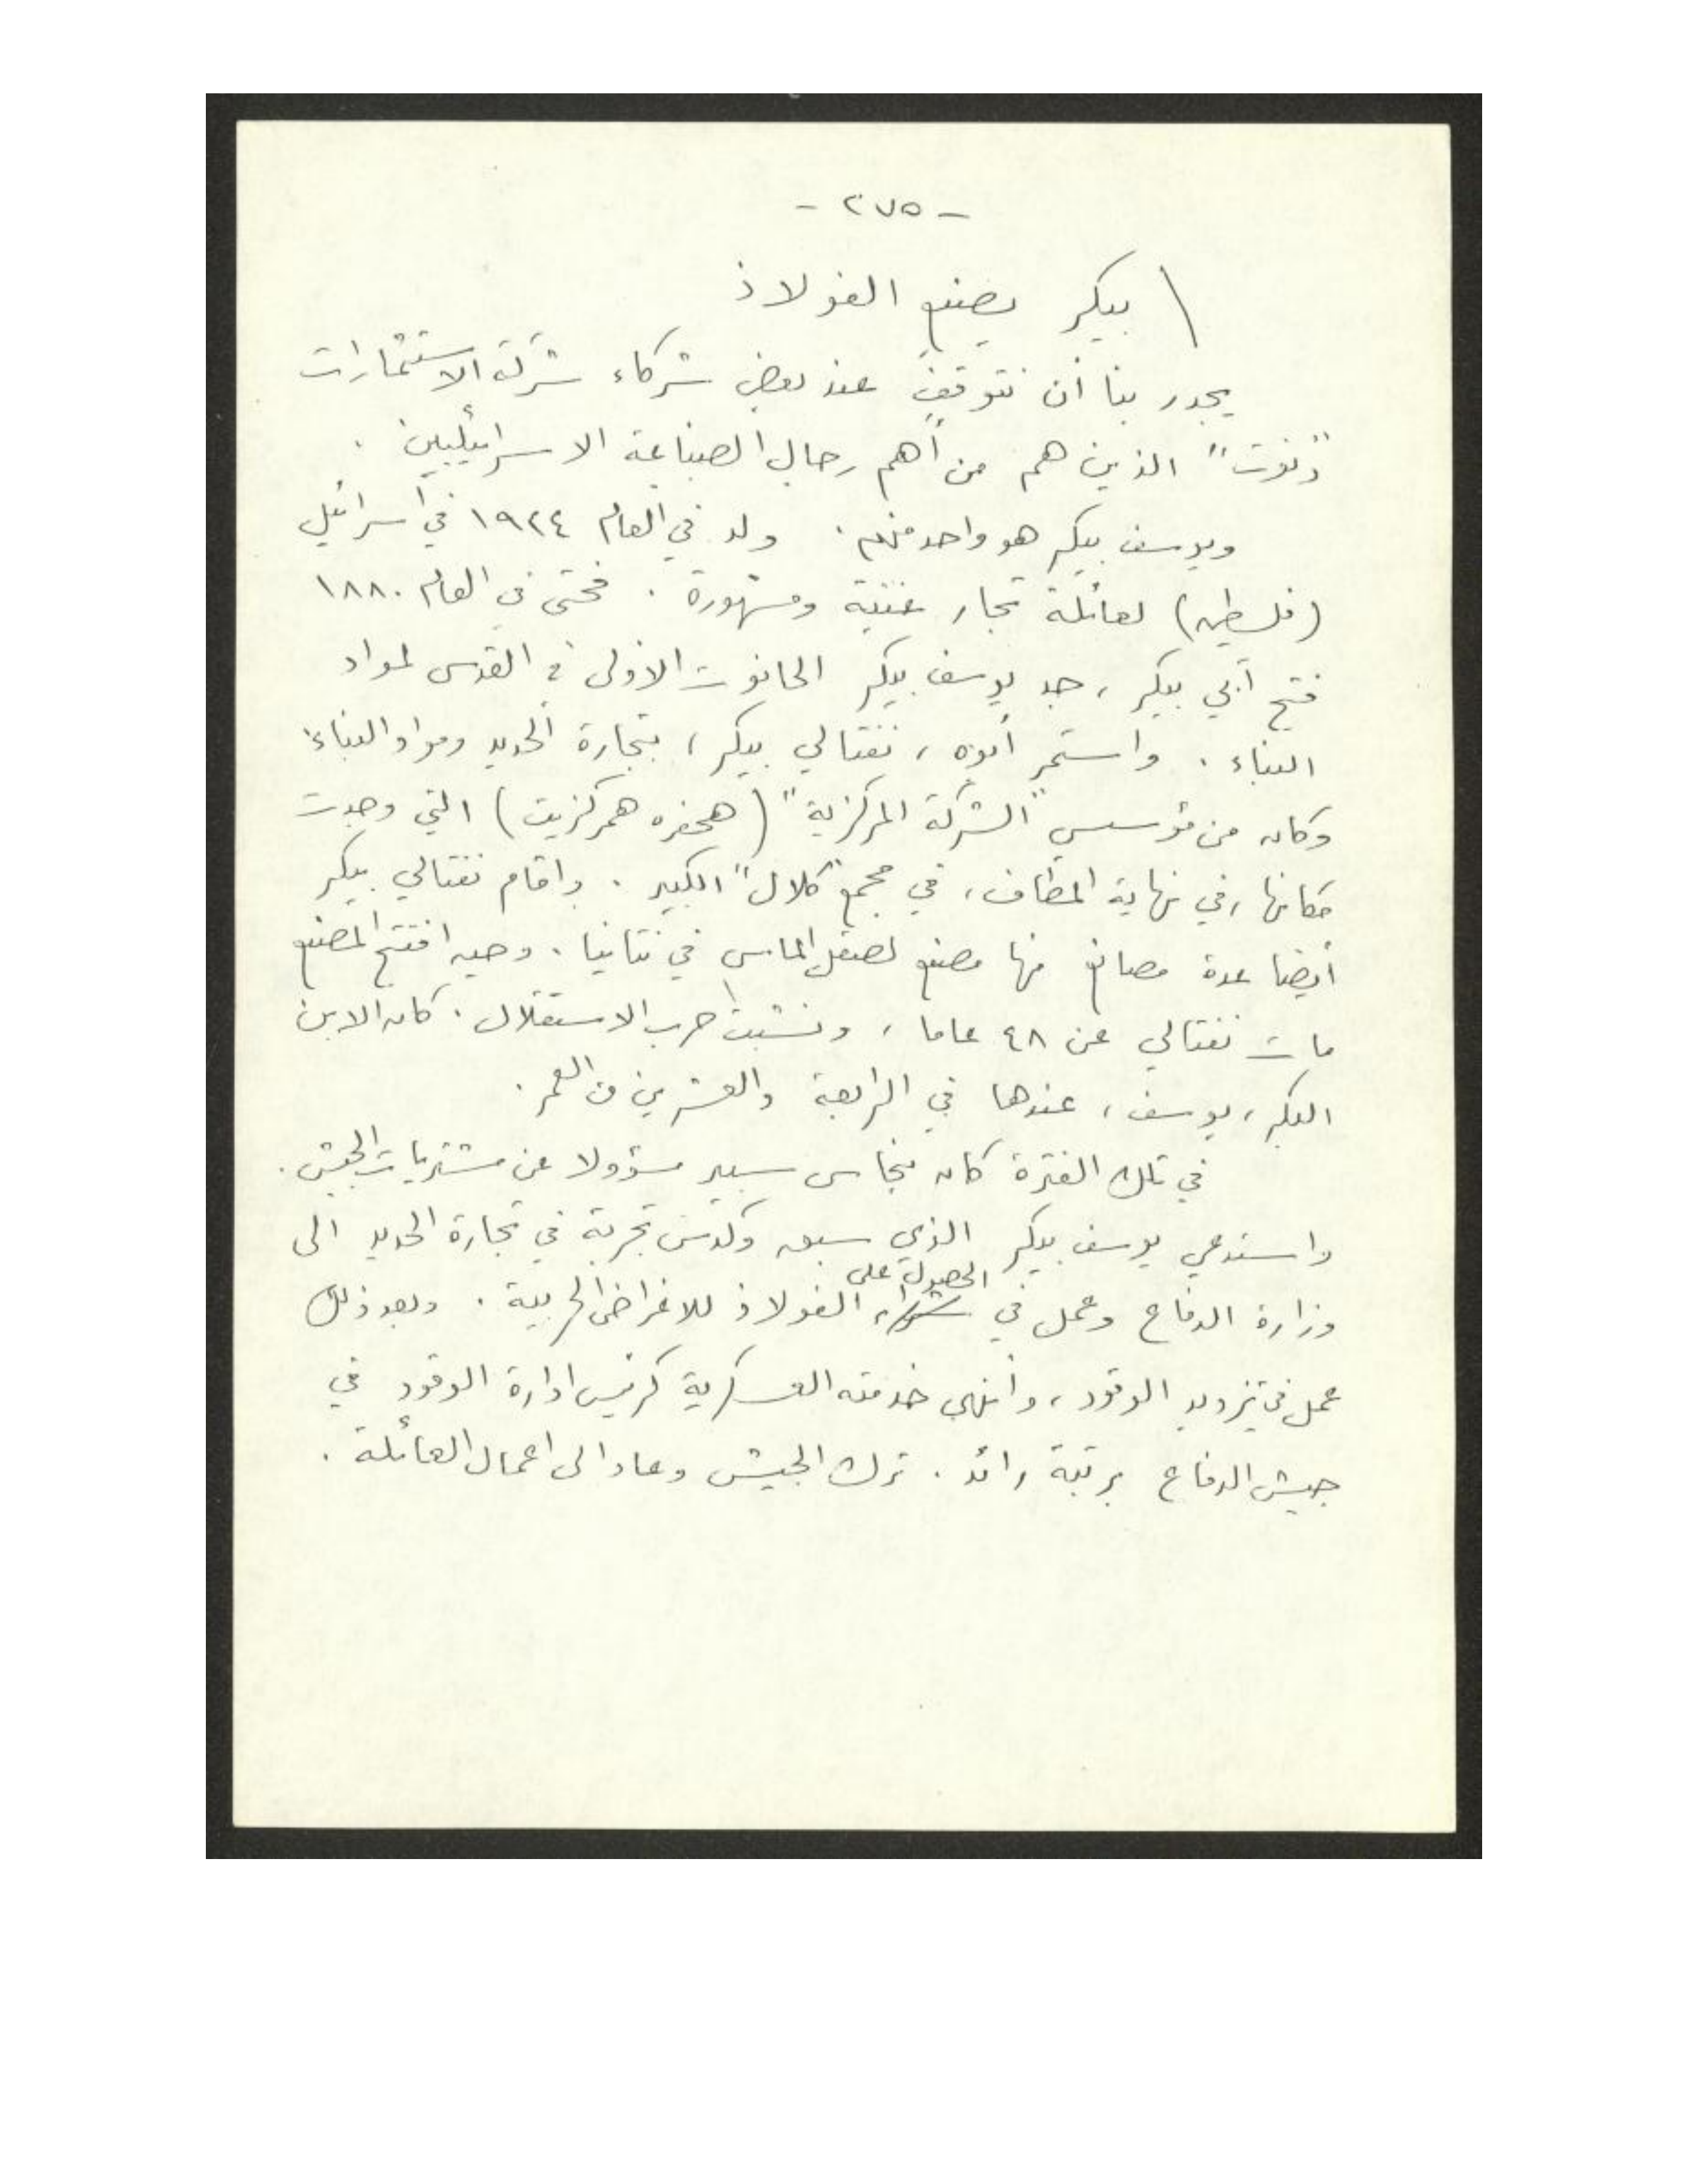 - ٢٧٥ -
\ بيكر يصنع الفولاذ
يجدر بنا أن نتوقف عند بعض شركاء شركة الاستثمارات
"دنوت" الذين هم من أهم رجال الصناعة الاسرائيليين .
ويوسف بيكر هو واحد منهم . ولد في العام ١٩٢٤ في اسرائيل
(فلسطين) لعائلة تجار غنية ومشهورة . فحتى في العام ١٨٨٠
فتح آبي بيكر ، جد يوسف بيكر الحانوت الاولى في القدس لمواد
البناء . واستمر أبوه ، نفتالي بيكر ، بتجارة الحديد ومواد البناء
وكان من مؤسسي "الشركة المركزية" (هحفره همركزيت) التي وجدت
مكانها ، في نهاية المطاف ، في مجمع "كلال" الكبير . واقام نفتالي بيكر
أيضا عدة مصانع منها مصنع لصقل الماس في نتانيا . وحين افتتح المصنع
مات نفتالي عن ٤٨ عاما ، ونشبت حرب الاستقلال . كان الابن
البكر ، يوسف ، عندها في الرابعة والعشرين من العمر .
في تلك الفترة كان بنحاس سبير مسؤولا عن مشتريات الجيش .
واستدعي يوسف بيكر الذي سبق وكدس تجربة في تجارة الحديد الى
وزارة الدفاع وعمل في شراء الحصول على الفولاذ للاغراض الحربية . وبعد ذلك
عمل في تزويد الوقود ، وأنهى خدمته العسكرية كرئيس ادارة الوقود في
جيش الدفاع برتبة رائد . ترك الجيش وعاد الى اعمال العائلة .